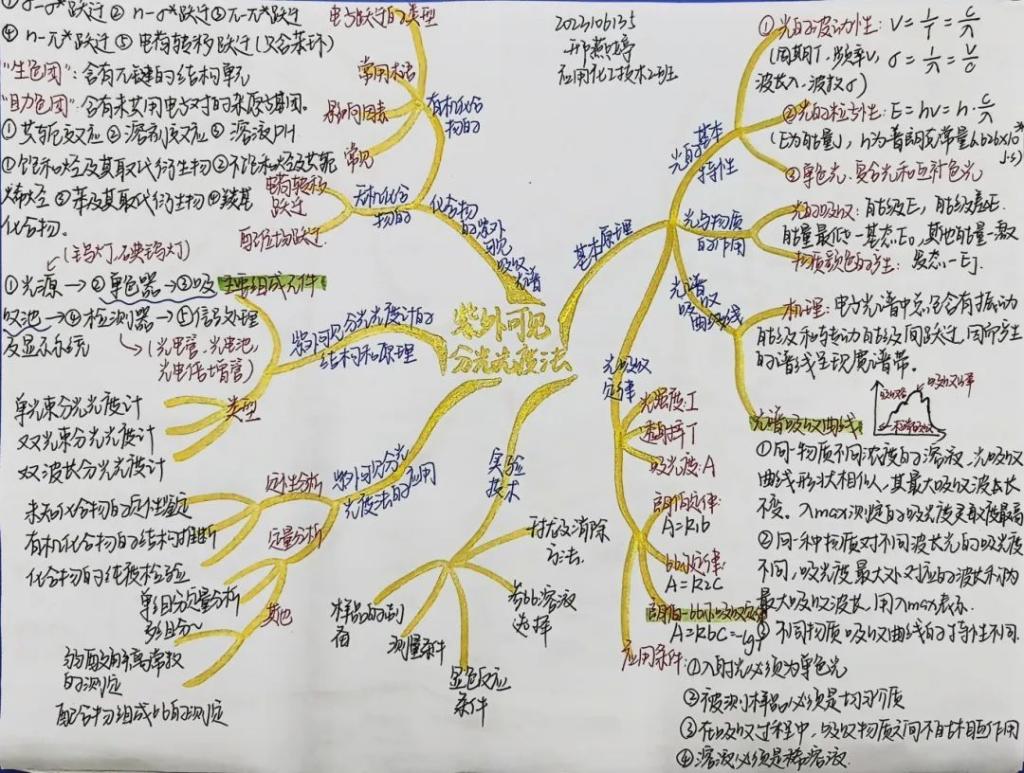 ①σ-σ*跃迁②n-σ*跃迁③π-π*跃迁
④n-π*跃迁⑤电荷转移跃迁(只含苯环)
"生色团":含有π键的结构单元
"助色团":含有未共用电子对的杂原子基团。
①共轭效应②溶剂效应③溶液PH
①饱和烃及其取代衍生物②不饱和烃及共轭
烯烃③苯及其取代衍生物④羰基
化合物。
电子跃迁的类型
常用术语
影响因素
常见
有机化合
物的
电荷转移
跃迁
配位场跃迁
无机化合
物的
化合物
的紫外
可见
吸收
光谱
2023106135
邢燕婷
应用化工技术2班
紫外可见
分光光度法
(钨灯、碘钨灯)
①光源→②单色器→③吸
收池→④检测器→⑤信号处理
及显示系统
(光电管、光电池,
光电倍增管)
主要组成元件
紫外可见分光光度计的
结构和原理
类型
单光束分光光度计
双光束分光光度计
双波长分光光度计
紫外可见分光
光度法的应用
定性分析
未知化合物的定性鉴定
有机化合物的结构推断
化合物的纯度检验
定量分析
单组分定量分析
多组分~
其他
弱酸的离解常数
的测定
配合物组成比的测定
实验
技术
样品的制
备
测量条件
显色反应
条件
参比溶液
选择
干扰及消除
方法
基本原理
光的基本
特性
①光的波动性: ν=1/T=c/λ
(周期T、频率ν, σ=1/λ=ν/c
波长λ、波数σ)
②光的粒子性:E=hν=h·c/λ
(E为能量), h为普朗克常量6.626×10
J·s)
③单色光、复合光和互补色光
光与物质
的作用
光的吸收:能级E,能级差E.
能量最低—基态E₀,其他能量—激
发态—Ej.
物质颜色的产生:
光谱
吸收
曲线
机理:电子光谱中总包含有振动
能级和转动能级间跃迁,因而产生
的谱线呈现宽谱带。
光谱吸收曲线
①同一物质不同浓度的溶液,光吸收
曲线形状相似,其最大吸收波长
不变。λmax测定的吸光度灵敏度最高
②同一种物质对不同波长光的吸光度
不同,吸光度最大处对应的波长称为
最大吸收波长,用λmax表示.
③不同物质吸收曲线的特性不同.
光吸收
定律
光强度I
透射率T
吸光度:A
朗伯定律:
A=K₁b
比尔定律:
A=K₂C
朗伯-比尔吸收定律
A=KbC=-lgT
应用条件:①入射光必须为单色光
②被测样品必须是均匀介质
③在吸收过程中,吸收物质之间不能相互作用
④溶液必须是稀溶液.